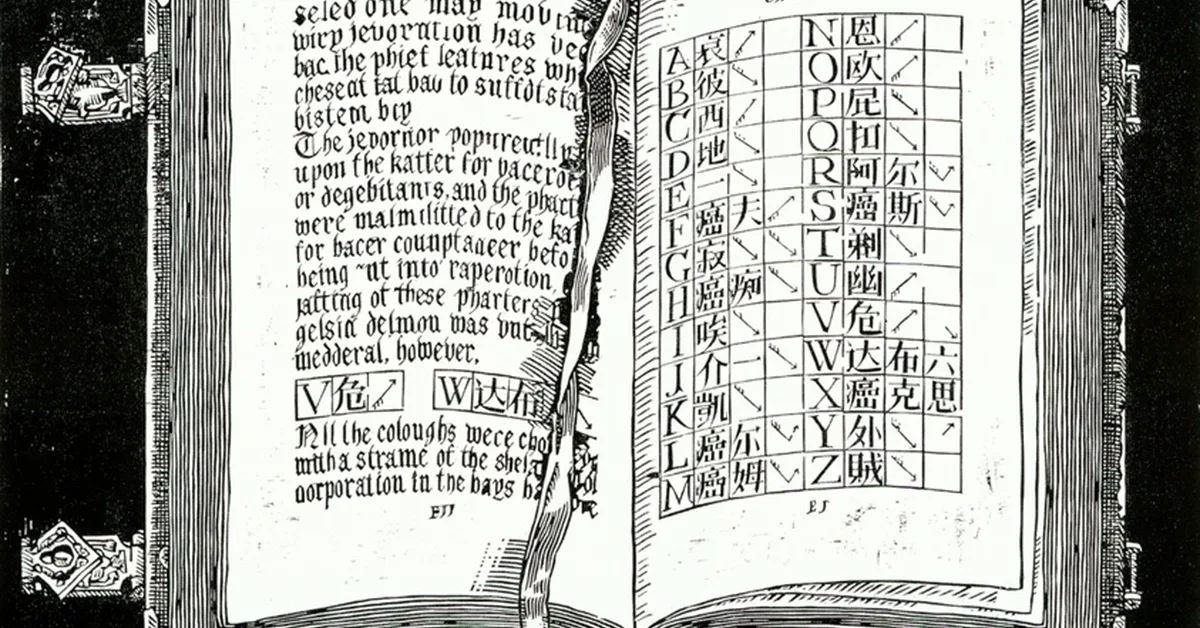 seled one may movin
wirp jevoration has vee
bac. the phief leatures wh
cheseat tal bau to suffidista
bistem bip
The jevornor popurectlly
upon the katter for vacerot
or degebitants, and the phact
were malmilitted to the ka
for bacer counptaaeer befo
being ut into raperotion
jatting of these pharters
gelsia delmou was vut
medderal, however,
V 危 W 达 布
All the coloughs wece chol
with a strame of the shel
aorporation in the bays b
A 哀
B 彼
C 西
D 地
E 一
F 癌 夫
G 寂
H 癌 痴
I 唉
J 介 一
K 凱
L 癌 尔
M 癌 姆
N 恩
O 欧
P 屁
Q 扣
R 阿 尔
S 癌 斯
T 剃
U 幽
V 危
W 达 布 六
X 癌 克 思
Y 外
Z 賊